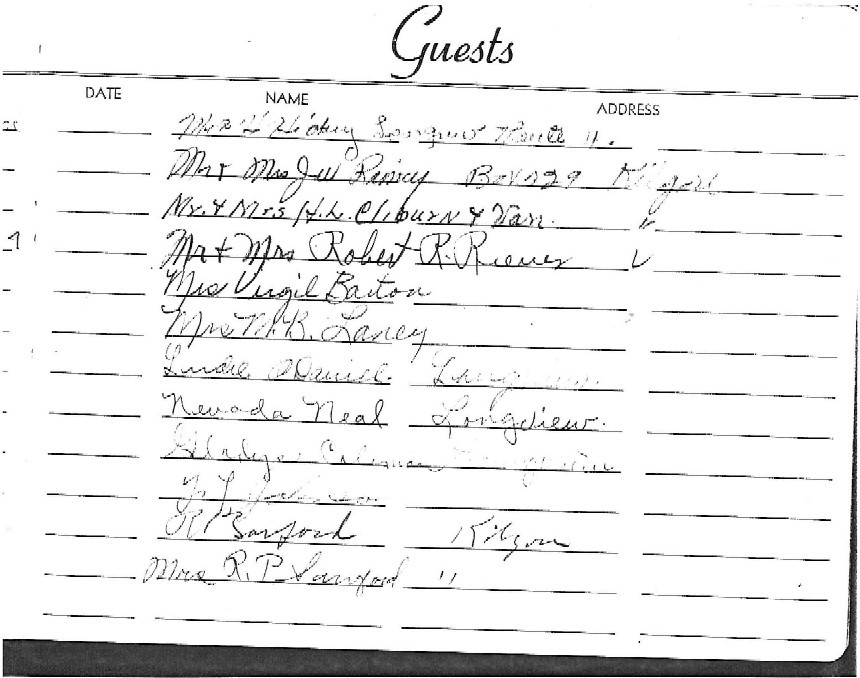 Guests
DATE NAME ADDRESS
Hickey Longview Route 4.
Mr & Mrs Rainey Box 729 Kilgore
Mr. & Mrs H.L. Cliburn & Van. "
Mr & Mrs Robert R. Reeves
Mrs Virgil Barton
Mrs M.B. Laney
O'Daniel Longview
Nevada Neal Longview.
Gladys Coleman Longview
Johnson
R P Sanford Kilgore
Mrs R.P. Sanford "